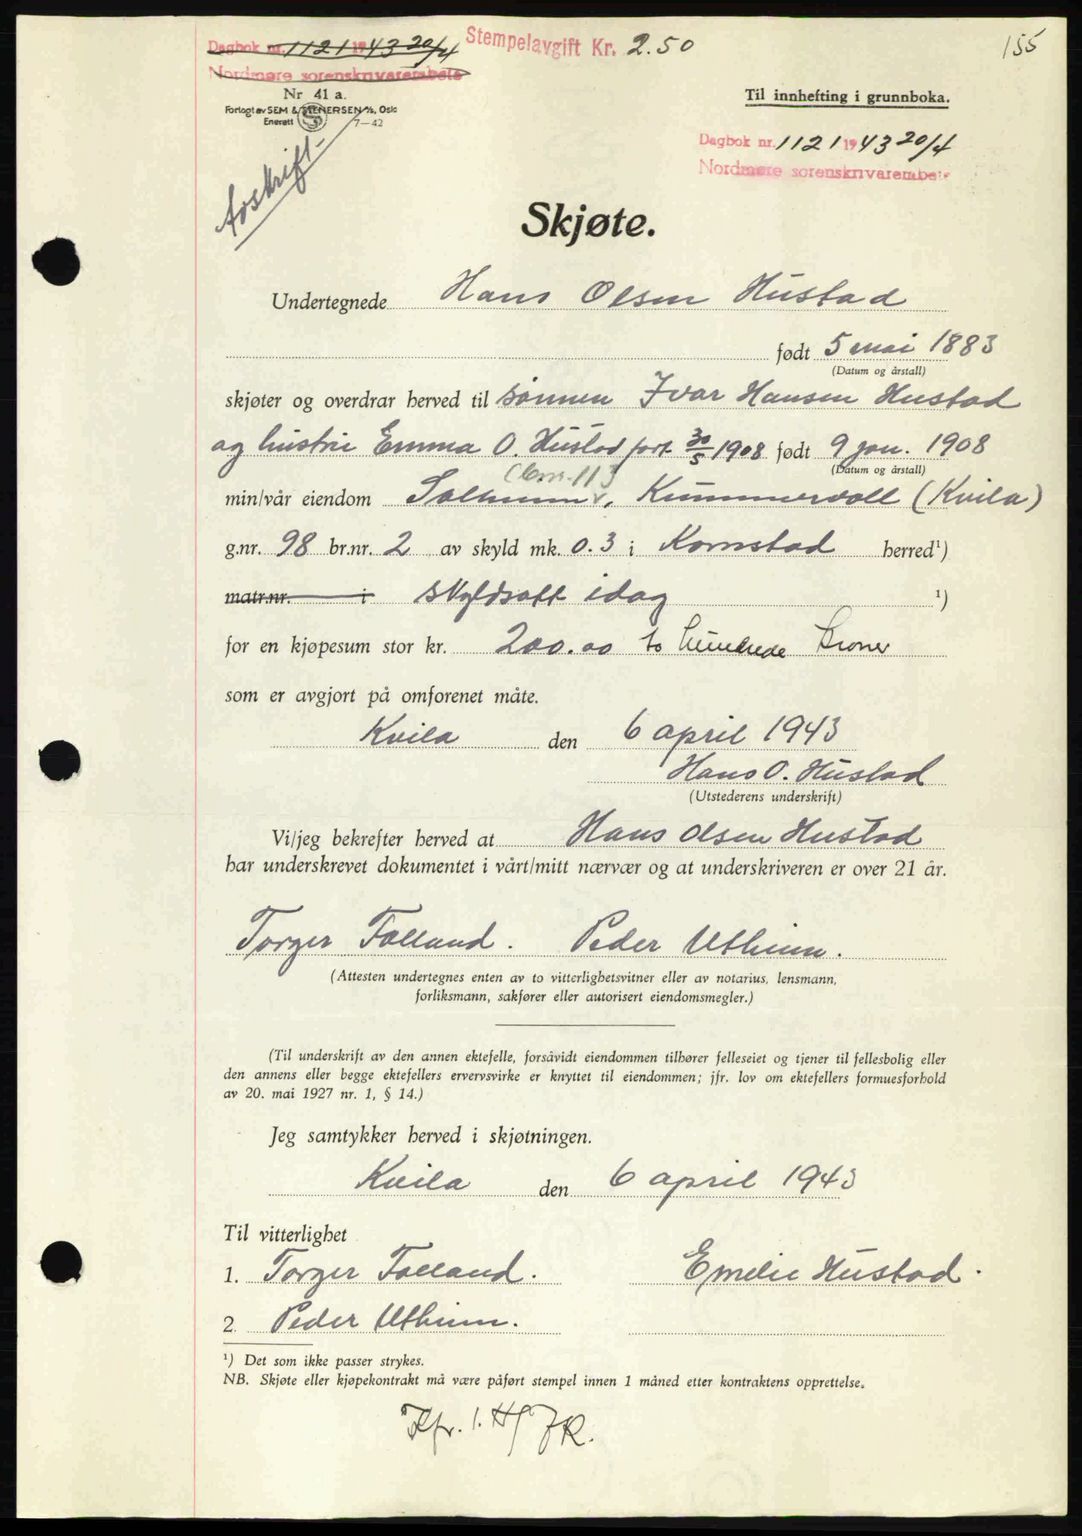 Dagbok nr. 1121 1943 20/4
Nordmøre sorenskrivarembete
Stempelavgift Kr. 2.50
155
Nr 41 a.
Forlagt av SEM & STENERSEN A/S, Oslo
Enerett 7-42
Til innhefting i grunnboka.
Dagbok nr. 1121 1943 20/4
Nordmøre sorenskrivarembete
Avskrift
Skjøte.
Undertegnede Hans Olsen Hustad
født 5 mai 1883
(Datum og årstall)
skjøter og overdrar herved til sønnen Ivar Hansen Hustad
og hustru Emma O. Hustad født 30/5 1908 født 9 jan. 1908
(Datum og årstall)
min/vår eiendom Kummervoll (Kvila)
g.nr. 98 br.nr. 2 av skyld mk. 0.3 i Kornstad herred¹)
matr.nr. i skyldsatt idag ¹)
for en kjøpesum stor kr. 200.00 to hundrede kroner
som er avgjort på omforenet måte.
Kvila den 6 april 1943
Hans O. Hustad
(Utstederens underskrift)
Vi/jeg bekrefter herved at Hans Olsen Hustad
har underskrevet dokumentet i vårt/mitt nærvær og at underskriveren er over 21 år.
Torger Folland. Peder Utheim.
(Attesten undertegnes enten av to vitterlighetsvitner eller av notarius, lensmann,
forliksmann, sakfører eller autorisert eiendomsmegler.)
(Til underskrift av den annen ektefelle, forsåvidt eiendommen tilhører felleseiet og tjener til fellesbolig eller
den annens eller begge ektefellers ervervsvirke er knyttet til eiendommen; jfr. lov om ektefellers formuesforhold
av 20. mai 1927 nr. 1, § 14.)
Jeg samtykker herved i skjøtningen.
Kvila den 6 april 1943
Til vitterlighet
1. Torger Folland. Emelie Hustad.
2. Peder Utheim.
¹) Det som ikke passer strykes.
NB. Skjøte eller kjøpekontrakt må være påført stempel innen 1 måned etter kontraktens opprettelse.